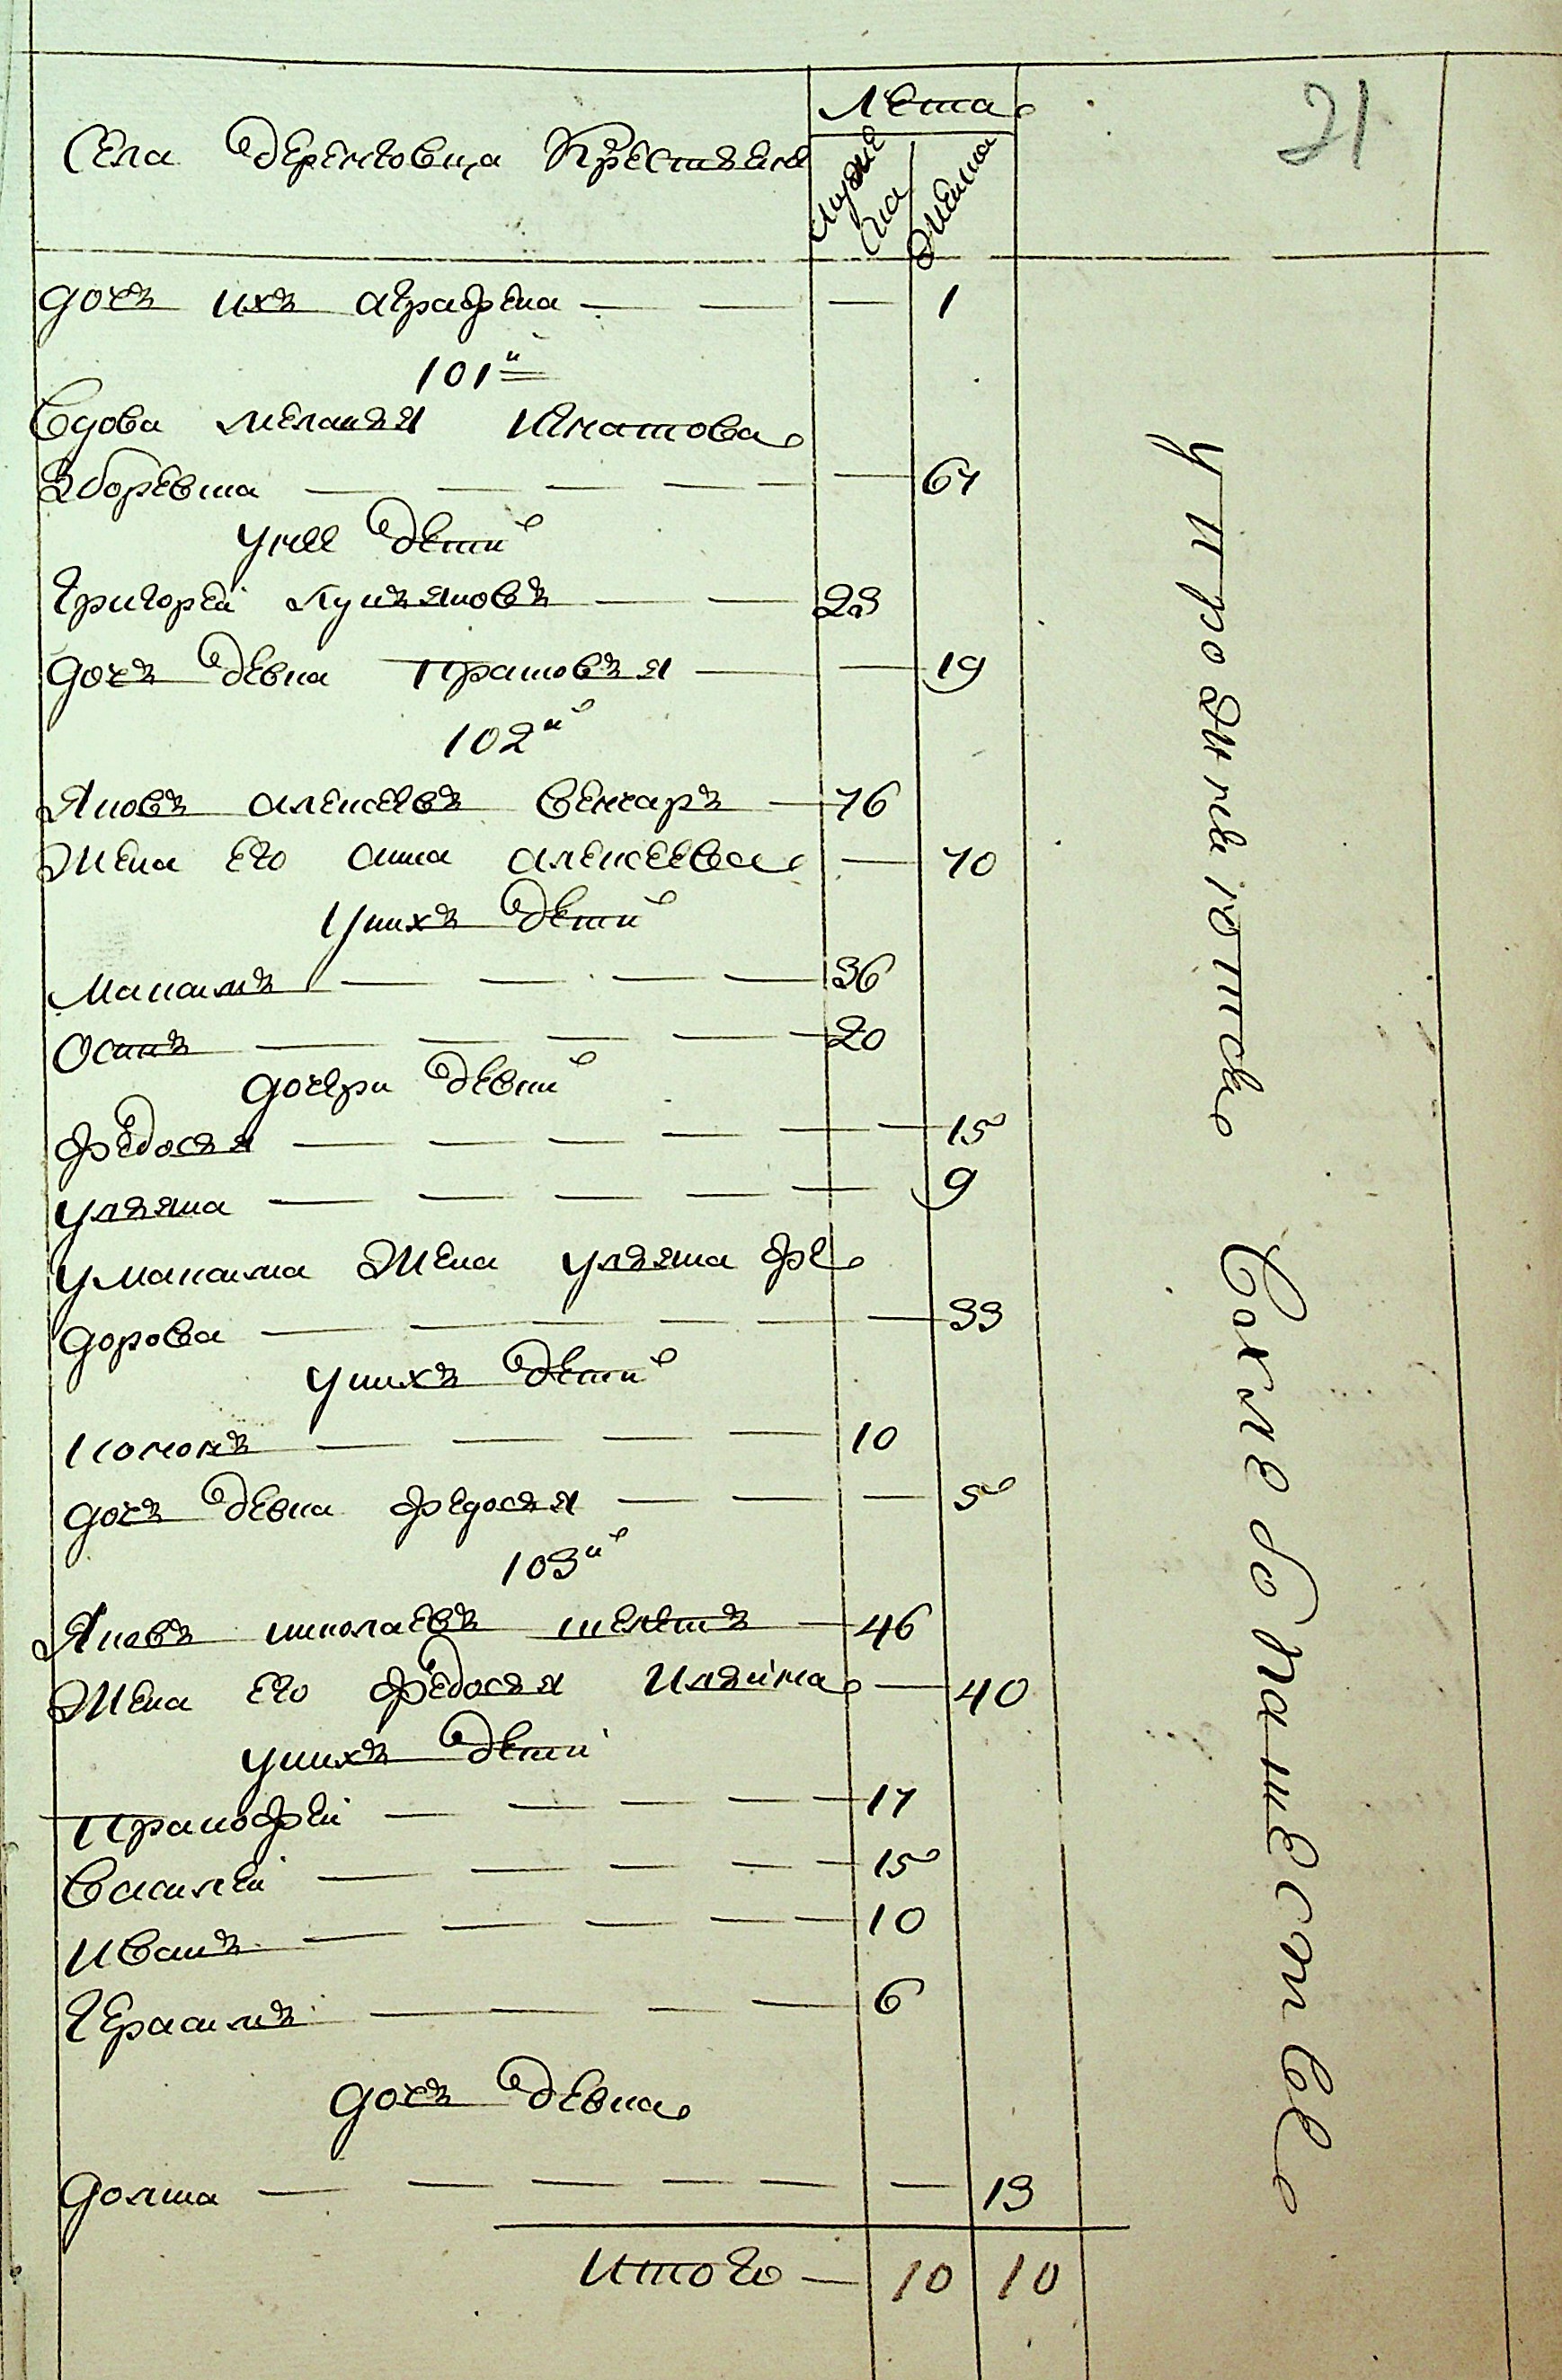 Села Деренговца Крестьяне
Лета
мужеска
женска
21
дочь ихъ аграфена — — — 1
101й
Вдова меланья Игнатова
Зборевна — — — — — — 67
унее дети
Григорей Лукьяновъ — — 23
дочь девка Прасковья — — 19
102й
Яковъ алексеевъ — 76
Жена его анна алексеева — 70
Унихъ дети
Максимъ — — — — 36
Осипъ — — — — — 20
дочери девки
Федосья — — — — — — 15
ульяна — — — — — 9
умаксима Жена ульяна Фе
дорова — — — — — — 33
унихъ дети
кононъ — — — — 10
дочь девка федосья — — — 5
103й
Яковъ николаевъ — 46
Жена его федосья Ильина — 40
унихъ дети
Пракофей — — — — 17
Василей — — — — — 15
Иванъ — — — — — 10
Герасимъ — — — 6
дочь девка
домна — — — — — — 13
Итого — 10 10